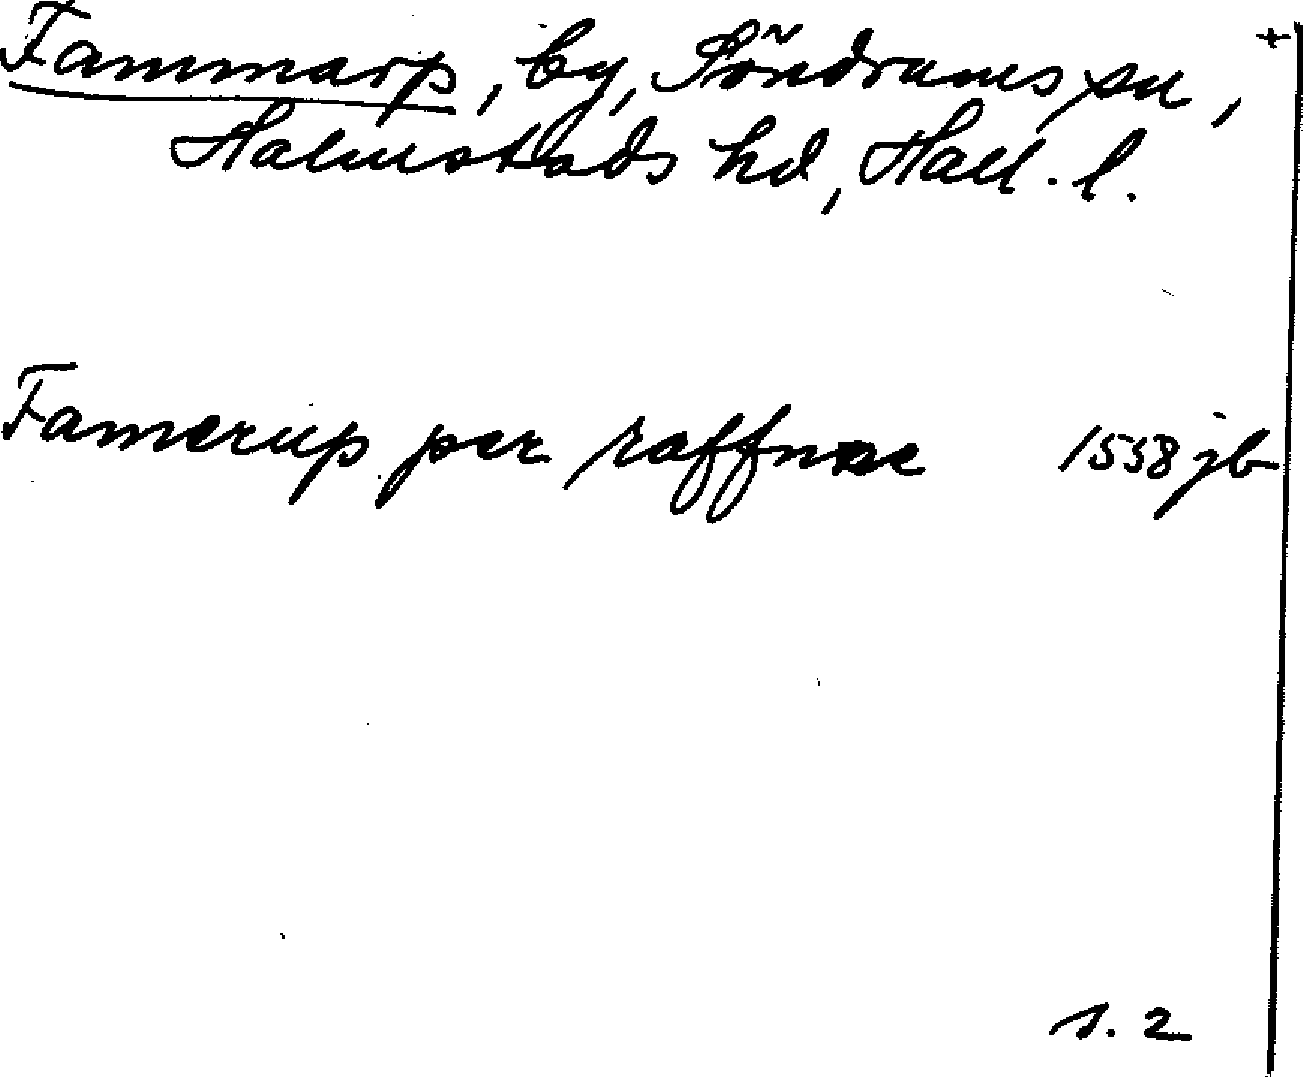 Fammarp, by, Söndrums sn, +
Halmstads hd, Hall. l.
Famerup per raffnne 1538 jb
s. 2